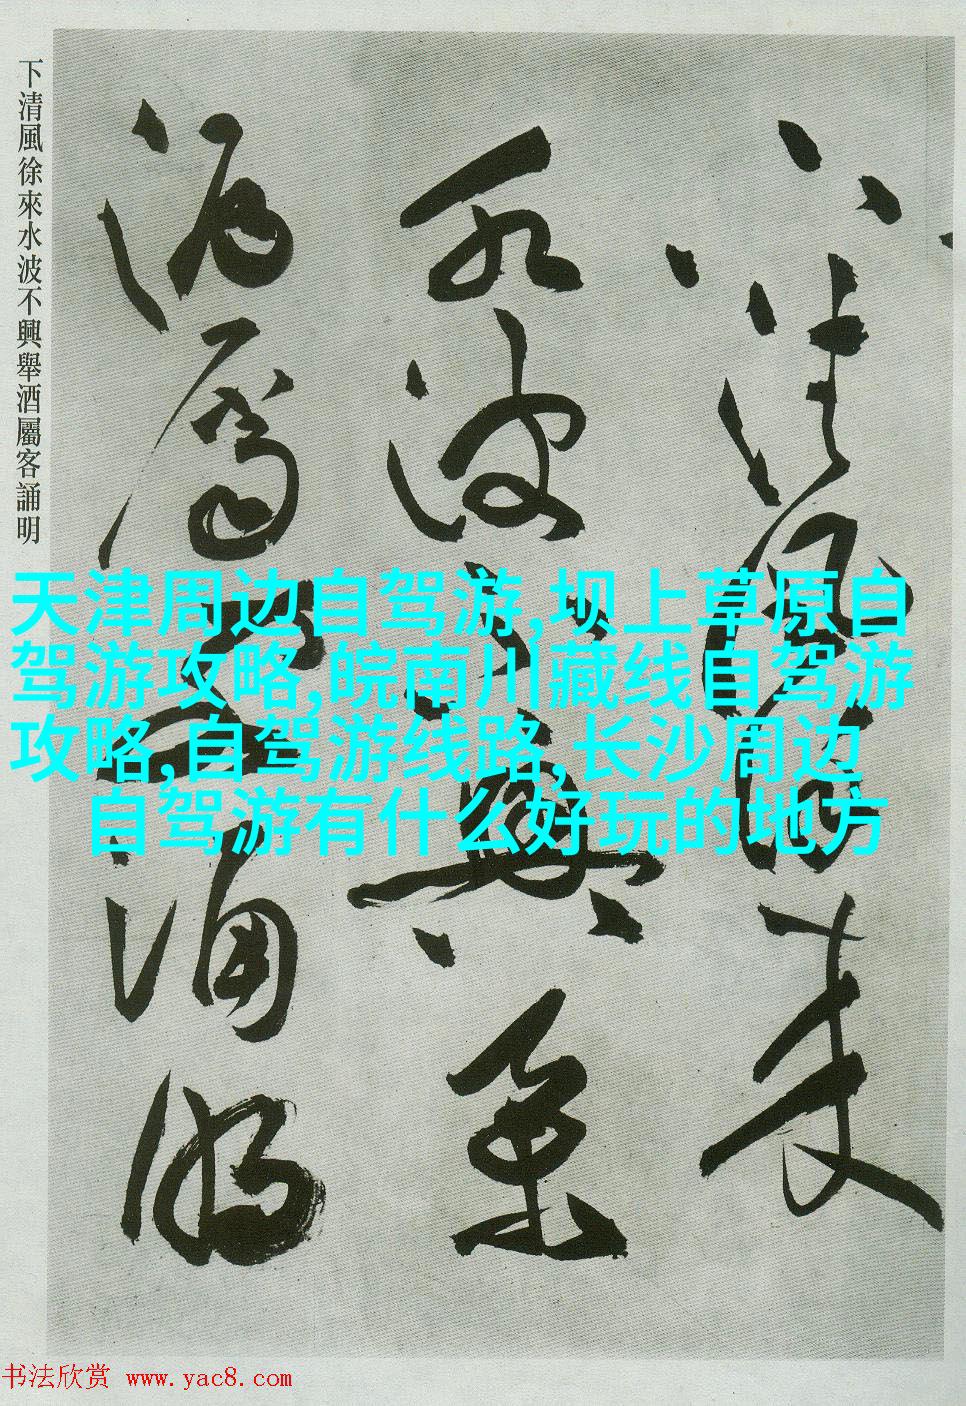 下清風徐來水波不興舉酒屬客誦明
下清風徐來
水波不興舉
酒屬客誦明
天津周边自驾游,坝上草原自
驾游攻略,皖南川藏线自驾游
攻略,自驾游线路,长沙周边
自驾游有什么好玩的地方
书法欣赏 www.yac8.com